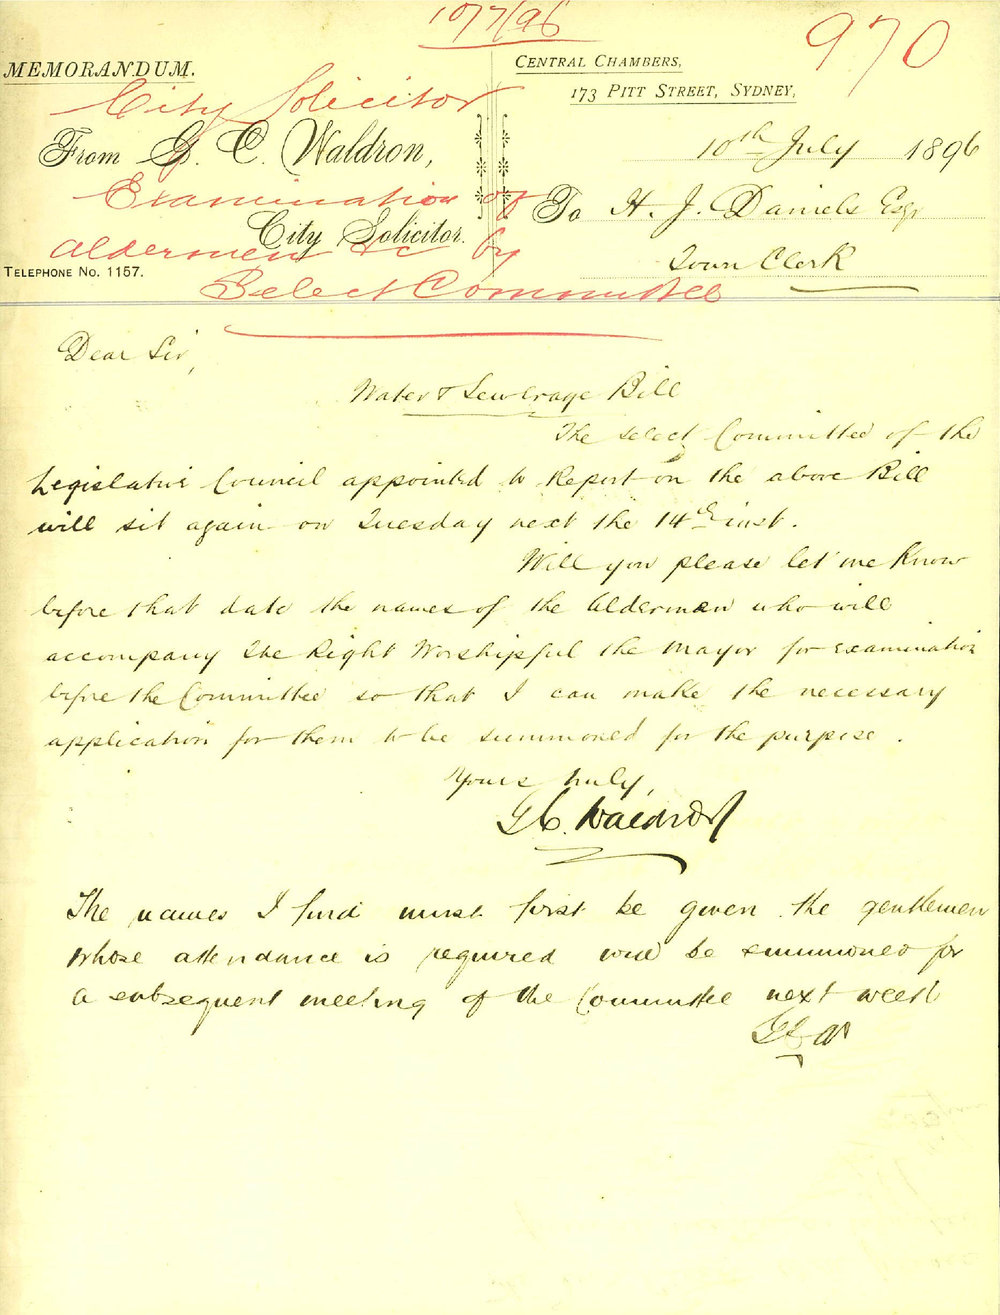 10/7/96
970
MEMORANDUM.
CENTRAL CHAMBERS,
173 PITT STREET, SYDNEY,
City Solicitor
From G. C. Waldron,
10th July 1896
Examination of
To H. J. Daniels Esqr
City Solicitor.
Aldermen &c by
Town Clerk
TELEPHONE NO. 1157.
Select Committee
Dear Sir,
Water & Sewerage Bill
The Select Committee of the
Legislative Council appointed to Report on the above Bill
will sit again on Tuesday next the 14th inst.
Will you please let me know
before that date the names of the Aldermen who will
accompany The Right Worshipful the Mayor for examination
before the Committee so that I can make the necessary
application for them to be summoned for the purpose.
Yours truly,
G C. Waldron
The names I find must first be given the gentlemen
whose attendance is required will be summoned for
a subsequent meeting of the Committee next week
GCW